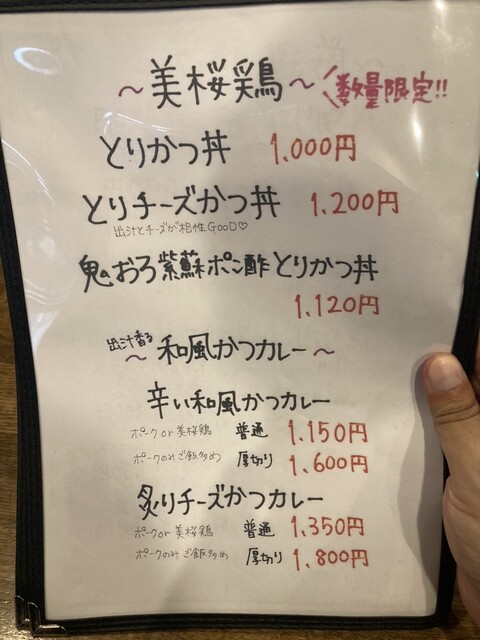 ～美桜鶏～ 数量限定!!
とりかつ丼 1.000円
とりチーズかつ丼 1.200円
出汁とチーズが相性GOOD♡
鬼おろ紫蘇ポン酢とりかつ丼
1.120円
出汁香る
～和風かつカレー～
辛い和風かつカレー
ポークor美桜鶏 普通 1.150円
ポークのみご飯多め 厚切り 1.600円
炙りチーズかつカレー
ポークor美桜鶏 普通 1.350円
ポークのみご飯多め 厚切り 1.800円